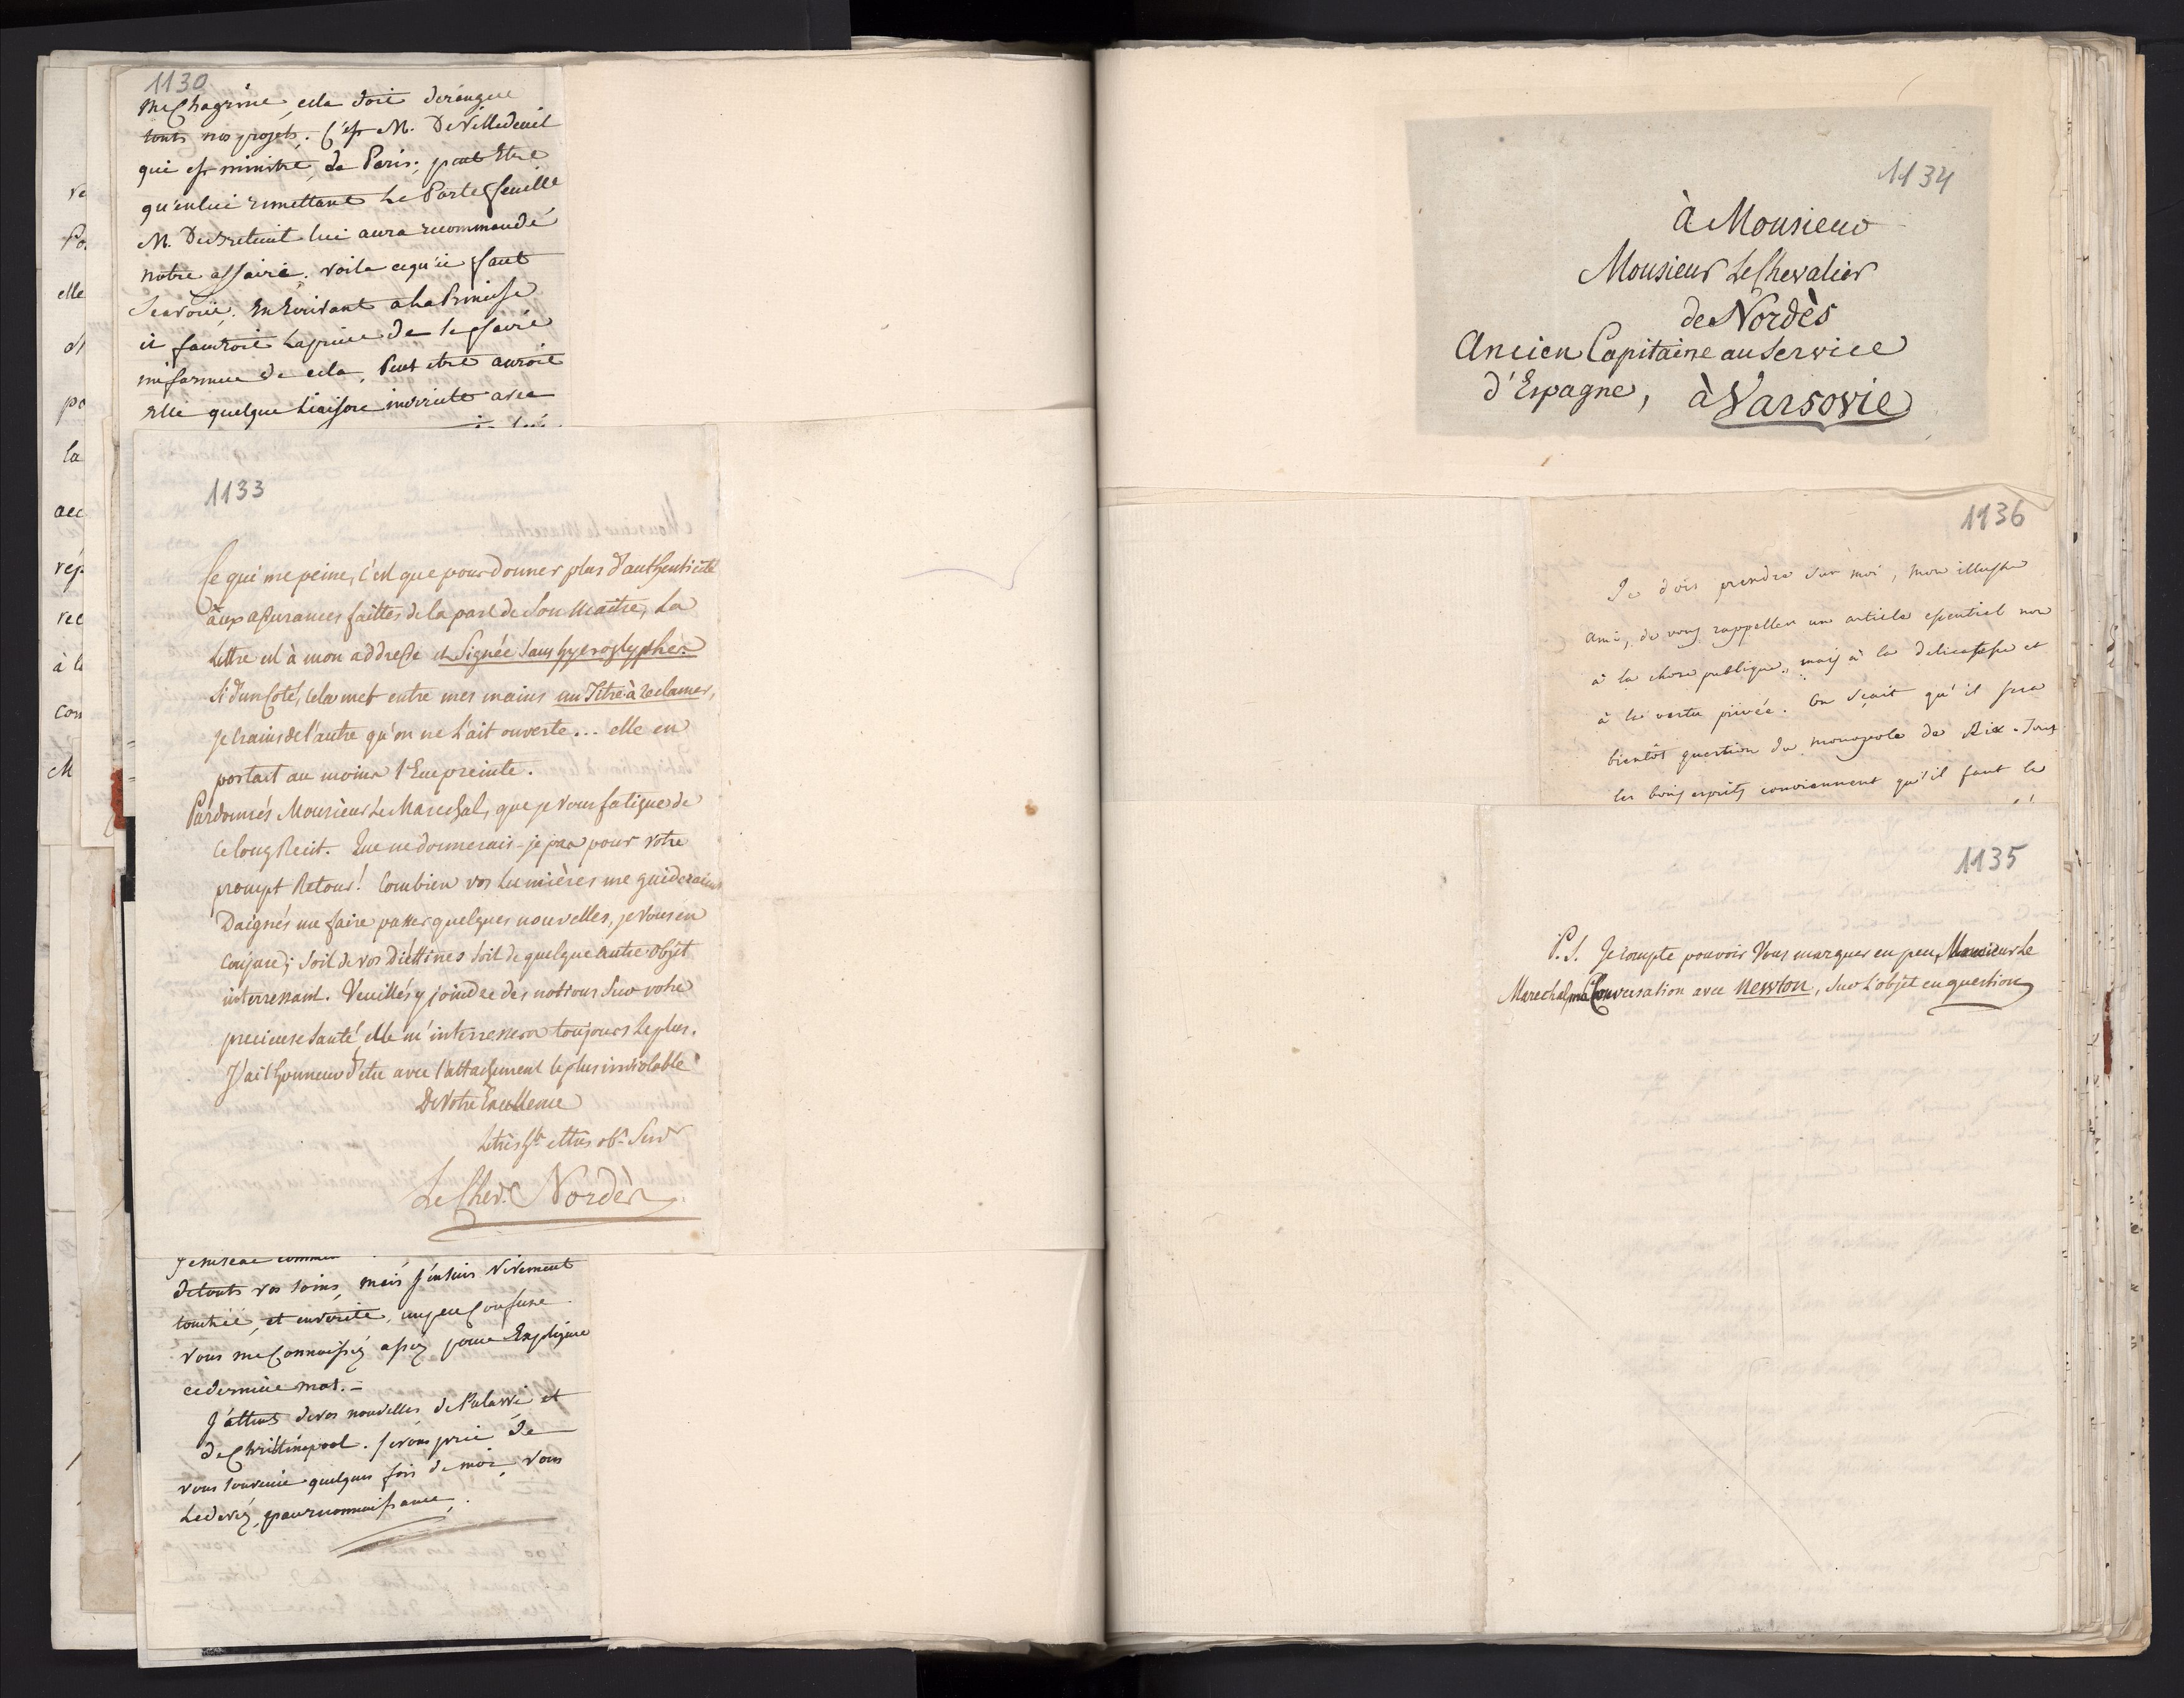 1130
me Chagrine, cela doit derangée
touts nos projets. C'est M. De Villedeuil
qui est ministre de Paris; peut Etre
qu'en lui remettant Le Porte feuille
M. De Breteuil lui aura recommandé
notre affaire. voila cequ'il faut
Scavoir. En Ecrivant a la Princesse
il faudroit la prier de se faire
informer de cela, Peut etre auroit
elle quelque Liaison indirecte avec
1133
Ce qui me peine, c'est que pour donner plus d'authenticité
aux assurances faittes de la part de Son Maitre, La
Lettre est à mon addresse et Signée Sans hyeroglyphes.
Si d'un Coté, cela met entre mes mains un Titre à reclamer,
je crains de l'autre qu'on ne L'ait ouverte... elle en
portait au moins l'Empreinte.
Pardonnés Monsieur Le Marechal, que je Vous fatigue de
ce long Recit. Que ne donnerais-je pas pour votre
prompt Retour! Combien vos Lumières me guideraient
Daignés me faire passer quelques nouvelles, je Vous en
conjure; soit de vos Diëttines soit de quelque autre objet
interressant. Veuillés y joindre des notions Sur votre
precieuse Santé, elle m'interressera toujours le plus.
J'ai l'honneur d'etre avec l'attachement le plus inviolable
De Votre Excellence
Le très hble et très obt Servr
Le Chevr. Nordès
de touts vos soins, mais J'en suis Vivement
touchée, et en verité, un peu Confuse
Vous me Connoissez assez pour Expliquer
ce dernier mot.-
J'attens de vos nouvelles de Pulawi et
de Christinopool. je vous prie de
vous souvenir quelques fois de moi, Vous
Le devez, par reconnoissance.
ve
Po.
elle
d'
po
la
acc
rép
rec
à la
con
M
1134
à Monsieur
Monsieur Le Chevalier
de Nordès
Ancien Capitaine au Service
d'Espagne, à Varsovie
1136
Je dois prendre sur moi, mon illustre
ami, de vous rappeller un article essentiel non
à la chose publique, mais à la delicatesse et
à la vertu privée. On sçait qu'il sera
bientôt question du monopole de Rix. Tous
les bons esprits conviennent qu'il faut le
1135
P.S. Je compte pouvoir Vous marquer en peu, Monsieur Le
Marechal, ma Conversation avec Newton, Sur L'objet en question